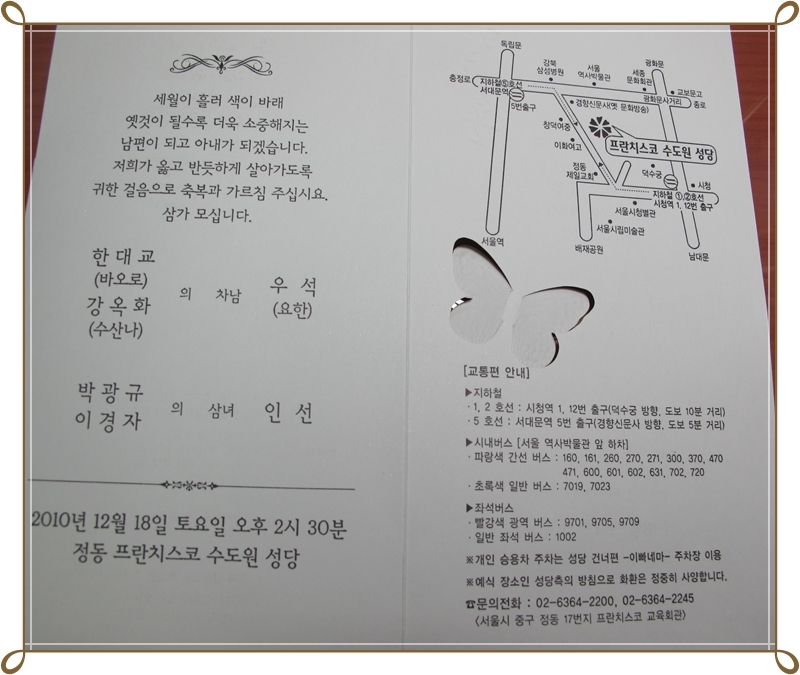 세월이 흘러 색이 바래
옛것이 될수록 더욱 소중해지는
남편이 되고 아내가 되겠습니다.
저희가 옳고 반듯하게 살아가도록
귀한 걸음으로 축복과 가르침 주십시요.
삼가 모십니다.
한 대 교
(바오로)
강 옥 화
(수산나)
의 차남
우 석
(요한)
박 광 규
이 경 자
의 삼녀
인 선
2010년 12월 18일 토요일 오후 2시 30분
정동 프란치스코 수도원 성당
독립문
충정로
지하철⑤호선
서대문역
5번출구
강북
삼성병원
서울
역사박물관
세종
문화회관
광화문
교보문고
광화문사거리
종로
경향신문새(옛 문화방송)
창덕여중
이화여고
프란치스코 수도원 성당
정동
제일교회
덕수궁
시청
지하철 ①,②호선
시청역 1, 12번 출구
서울시청별관
서울시립미술관
서울역
배재공원
남대문
[교통편 안내]
▶지하철
· 1, 2 호선 : 시청역 1, 12번 출구(덕수궁 방향, 도보 10분 거리)
· 5 호선 : 서대문역 5번 출구(경향신문사 방향, 도보 5분 거리)
▶시내버스 [서울 역사박물관 앞 하차]
· 파랑색 간선 버스 : 160, 161, 260, 270, 271, 300, 370, 470
471, 600, 601, 602, 631, 702, 720
· 초록색 일반 버스 : 7019, 7023
▶좌석버스
· 빨강색 광역 버스 : 9701, 9705, 9709
· 일반 좌석 버스 : 1002
※개인 승용차 주차는 성당 건너편 -이빠네마- 주차장 이용
※예식 장소인 성당측의 방침으로 화환은 정중히 사양합니다.
☎문의전화 : 02-6364-2200, 02-6364-2245
〈서울시 중구 정동 17번지 프란치스코 교육회관〉